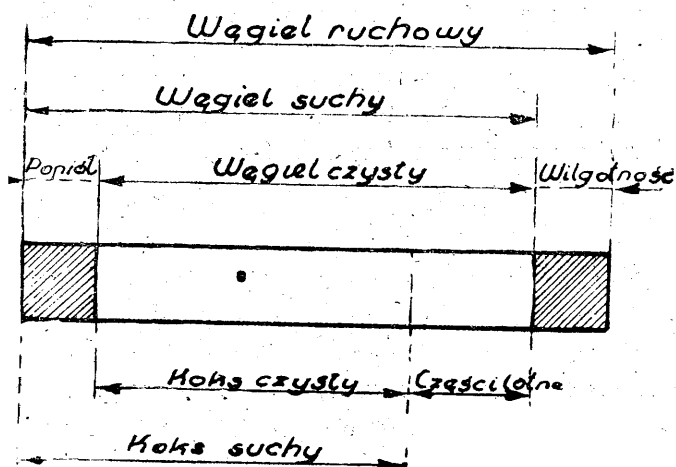 Węgiel ruchowy
Węgiel suchy
Popiół Węgiel czysty Wilgotność
Koks czysty Części lotne
Koks suchy